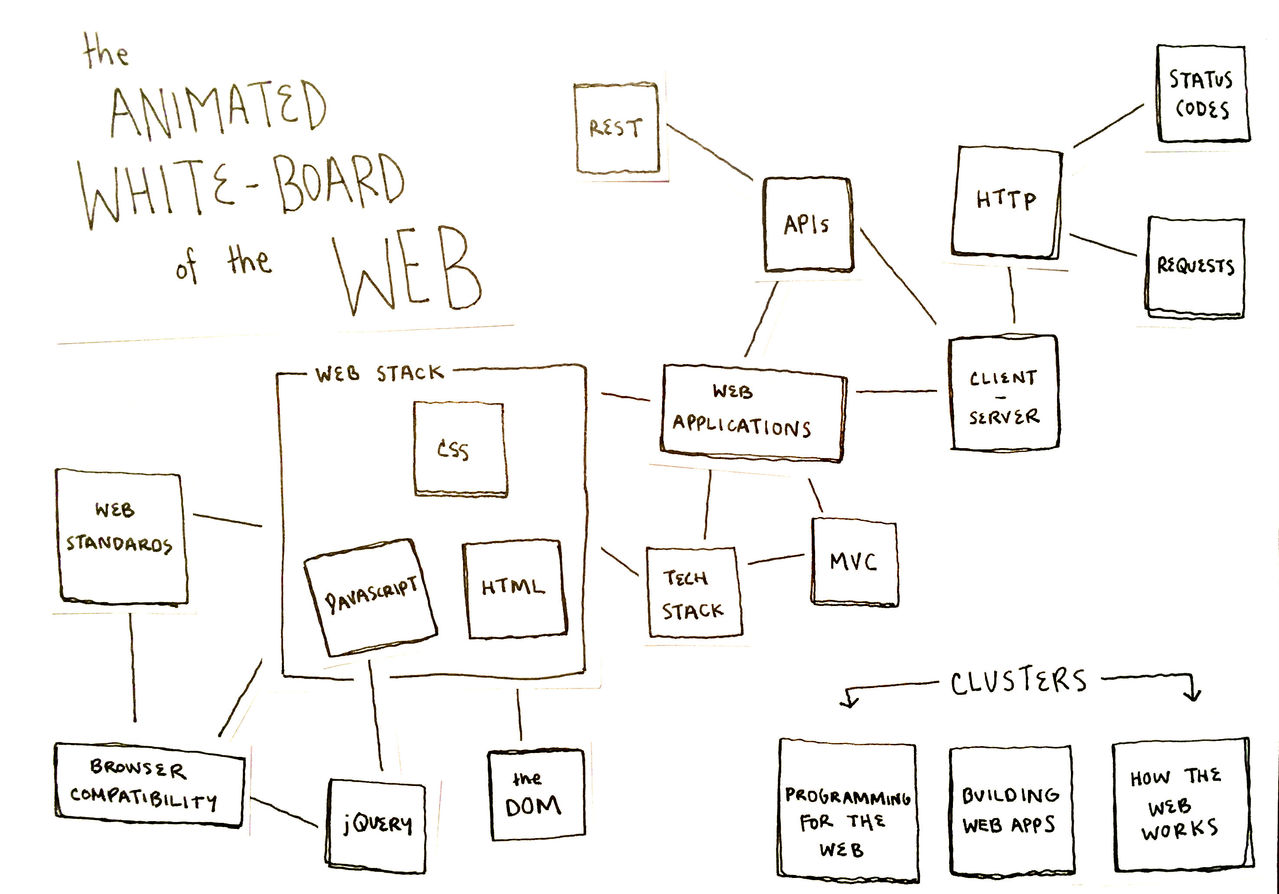 the
ANIMATED
WHITE-BOARD
of the WEB
REST
APIs
HTTP
STATUS
CODES
REQUESTS
CLIENT
-
SERVER
WEB
APPLICATIONS
WEB STACK
CSS
JAVASCRIPT
HTML
WEB
STANDARDS
TECH
STACK
MVC
BROWSER
COMPATIBILITY
jQUERY
the
DOM
CLUSTERS
PROGRAMMING
FOR THE
WEB
BUILDING
WEB APPS
HOW THE
WEB
WORKS